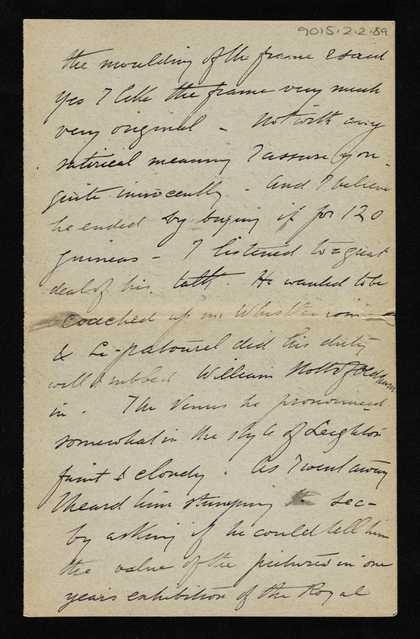 9015·2·2·89
the moulding of the frame & said
yes I like the frame very much
very original - Not with any
satirical meaning I assure you -
quite innocently. And I believe
he ended by buying it for 120
guineas - I listened to a great
deal of his talk. He wanted to be
coached up in Whistlerism
& Le-patourel did his duty
well & rubbed William Stott of Oldham
in. The Venus he pronounced
somewhat in the style of Leighton
faint & cloudy. As I went away
I heard him stumping Sec-
by asking if he could tell him
the value of the pictures in one
years exhibition of the Royal